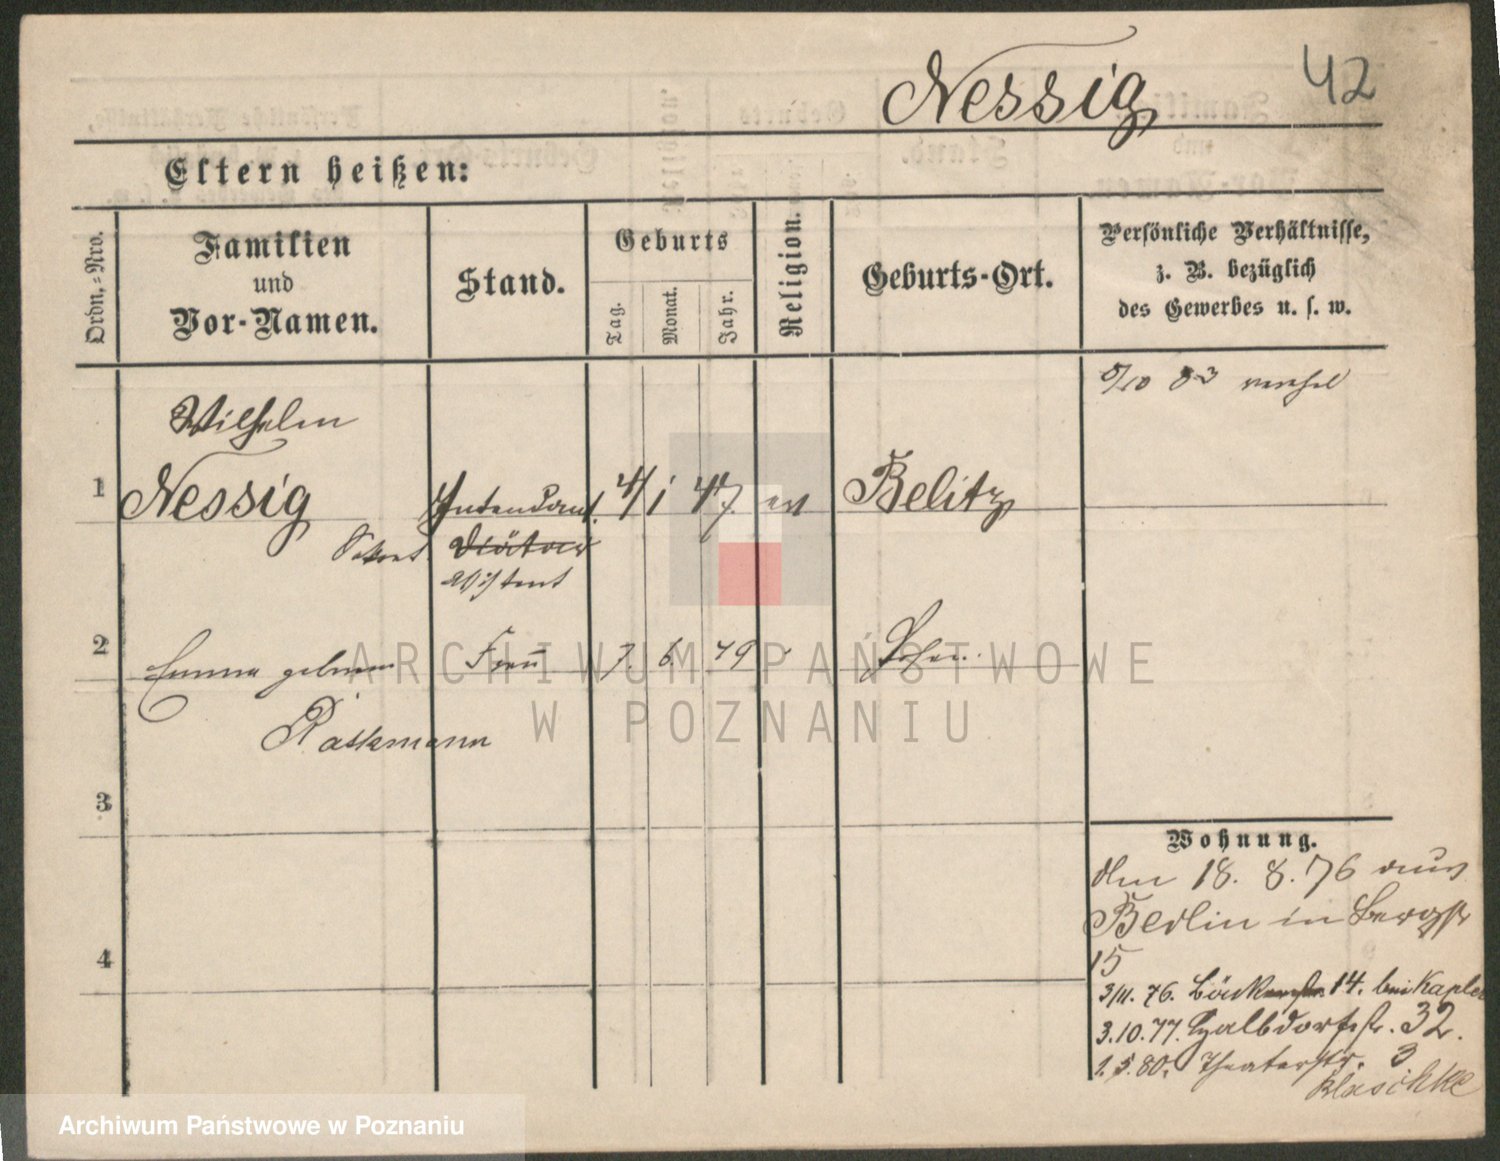 Nessig 42
Eltern heißen:
Ordn.-Nro.
Familien
und
Vor-Namen.
Stand.
Geburts
Tag.
Monat.
Jahr.
Religion.
Geburts-Ort.
Persönliche Verhältnisse,
z. B. bezüglich
des Gewerbes u. s. w.
Wilhelm
1 Nessig Intendant. 4/ 1 47. ev Belitz
Sekret. Diätar
Assistent
2 Emma geborene Frau 7. 6. 49
Rackmann
3
4
Wohnung.
den 18. 8. 76 aus
Berlin in Bergstr
15
3/11. 76. Bäckerstr. 14. bei Kapler
3.10.77. Halbdorfstr. 32.
1.5.80. Theaterstr. 3
Blaschke
ARCHIWUM PAŃSTWOWE
W POZNANIU
Archiwum Państwowe w Poznaniu